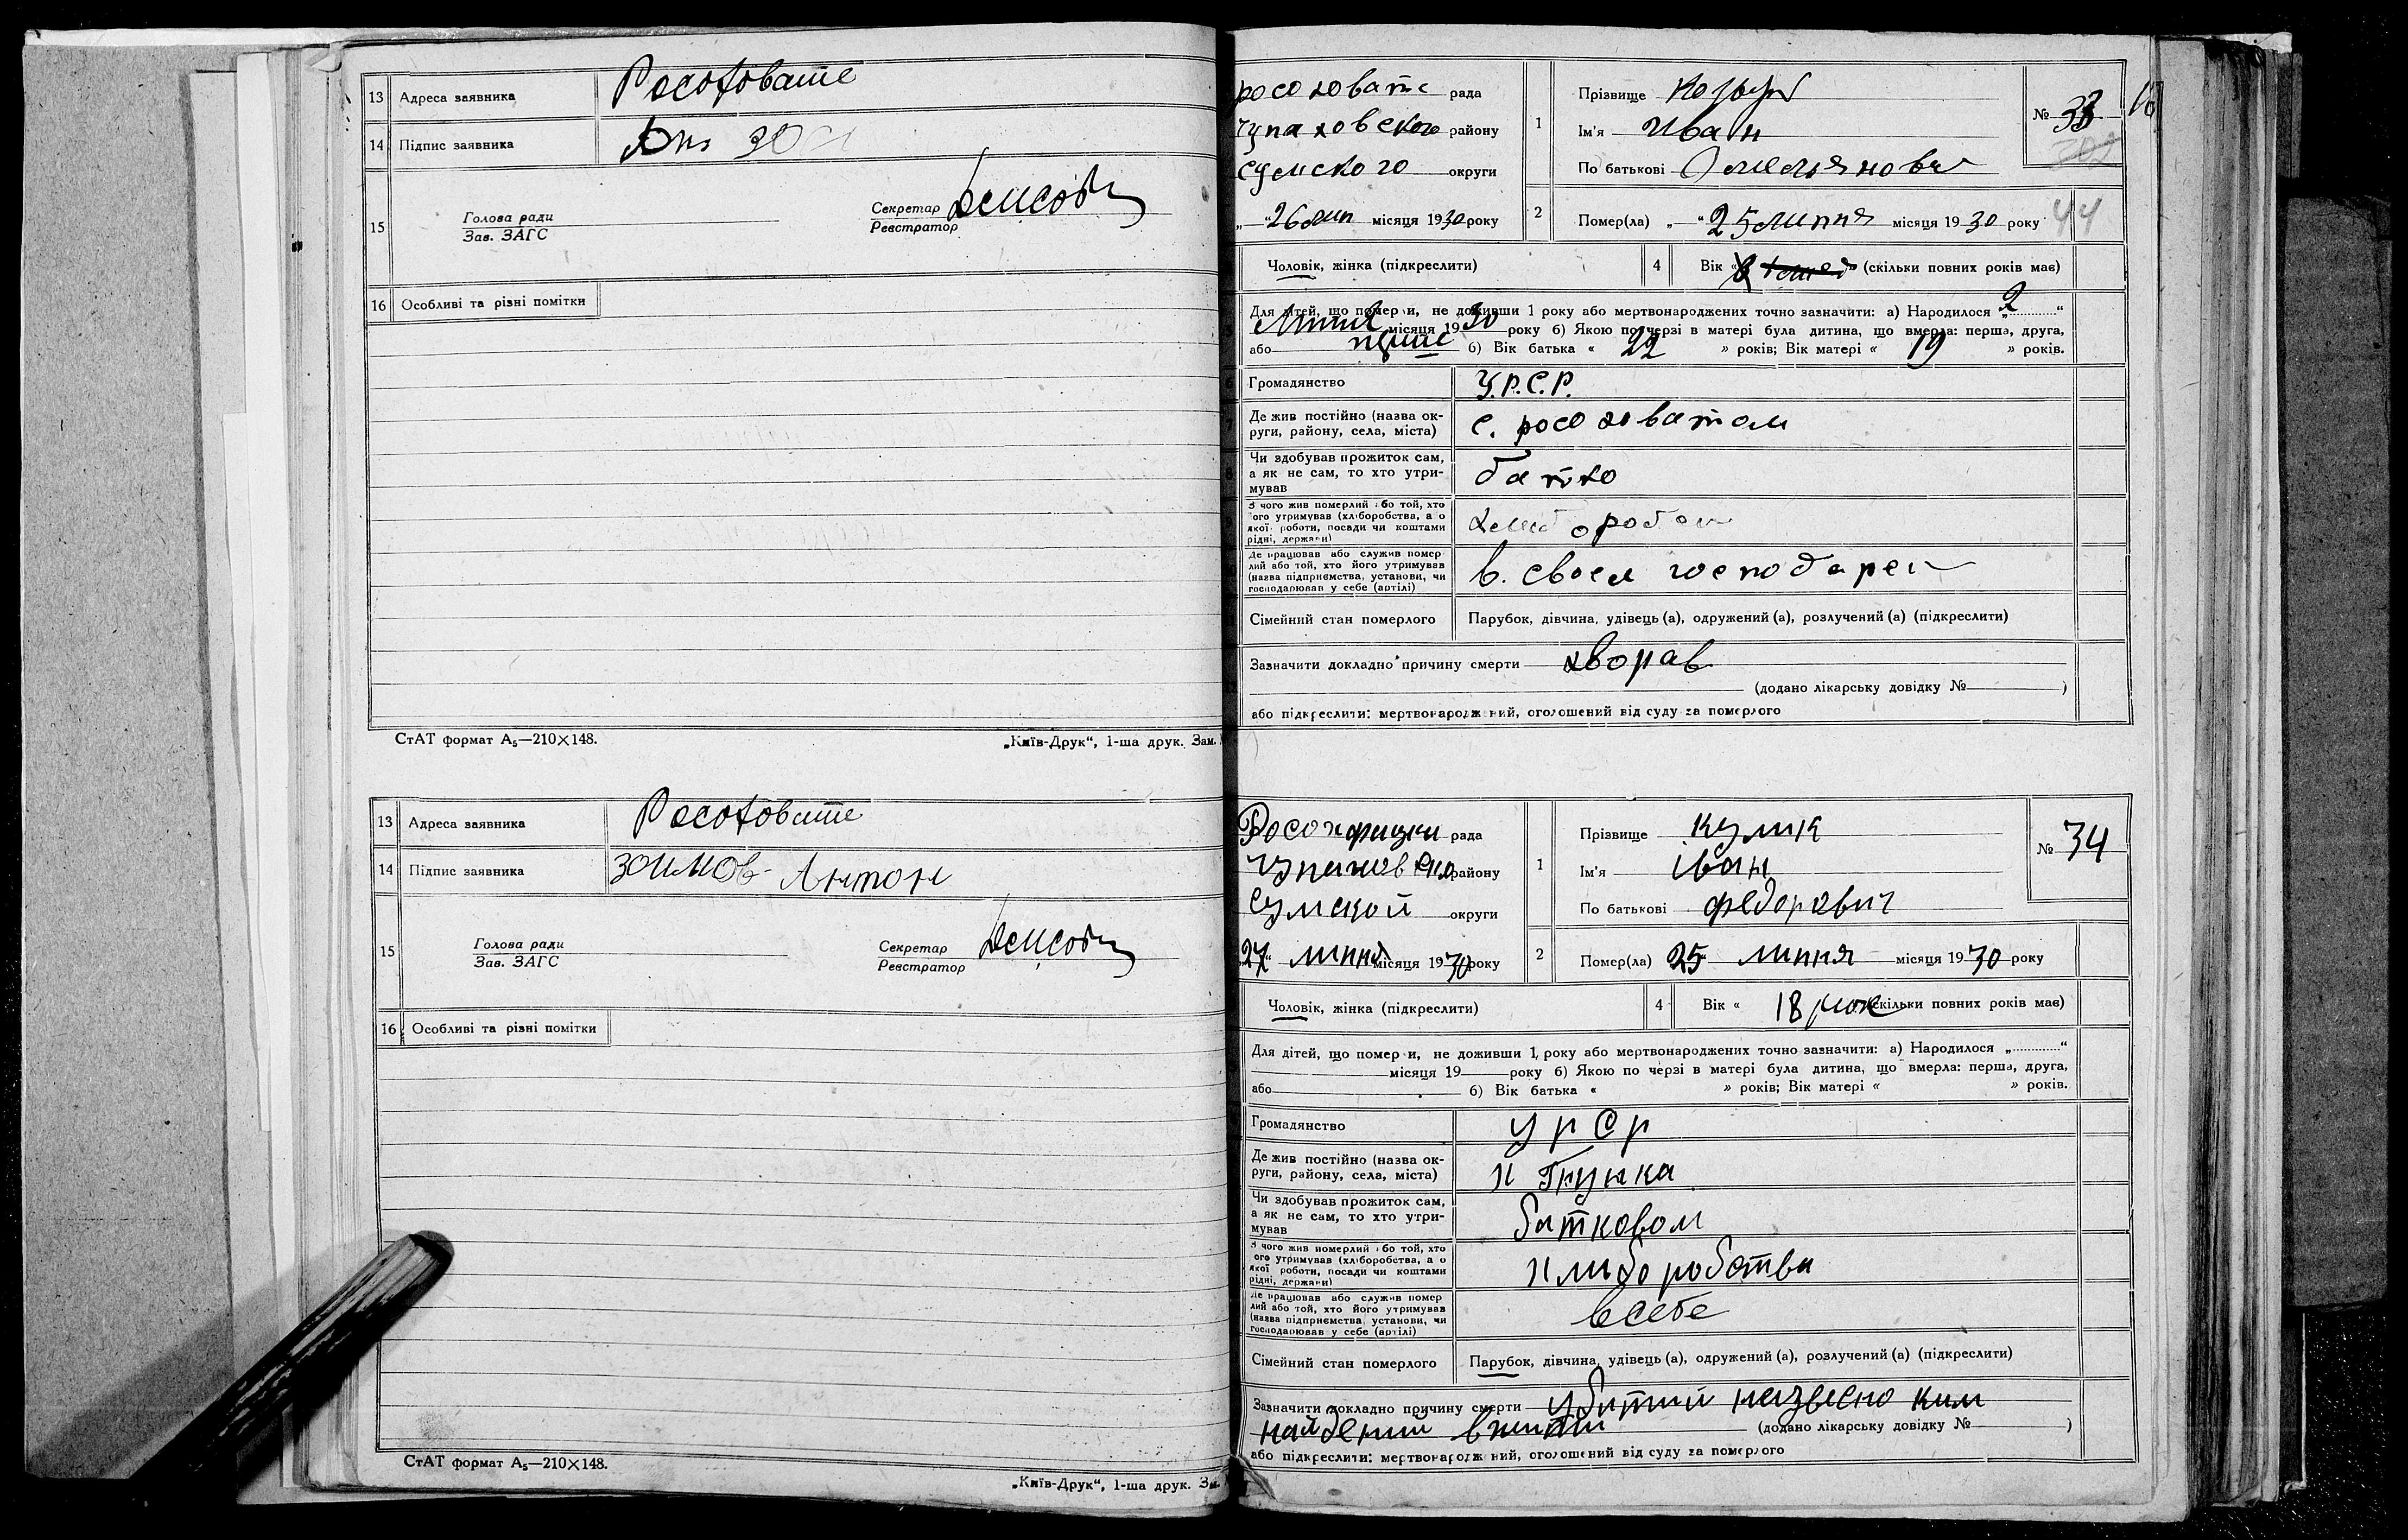 13 Адреса заявника Росоховате
14 Підпис заявника
15 Голова ради
Зав. ЗАГС
Секретар
Реєстратор
16 Особливі та різні помітки
СтАТ формат А₅—210×148.
„Київ-Друк“, 1-ша друк. Зам.
13 Адреса заявника Росоховате
14 Підпис заявника Антон
15 Голова ради
Зав. ЗАГС
Секретар
Реєстратор
16 Особливі та різні помітки
СтАТ формат А₅—210×148.
„Київ-Друк“, 1-ша друк.
росоховате рада
чупаховского району
сумского округи
„26 лип місяця 1930 року
1 Прізвище
Ім'я Иван
По батькові Омельянович
№ 33
2 Помер(ла) „25 липня місяця 1930 року 44
Чоловік, жінка (підкреслити)
4 Вік (скільки повних років має)
Для дітей, що помер и, не доживши 1 року або мертвонароджених точно зазначити: а) Народилося „2“
місяця 1930 року б) Якою по черзі в матері була дитина, що вмерла: перша, друга,
або б) Вік батька « 22 » років; Вік матері « 19 » років.
Громадянство У.Р.С.Р.
Де жив постійно (назва ок-
руги, району, села, міста) с. росоховатом
Чи здобував прожиток сам,
а як не сам, то хто утри-
мував батько
З чого жив померлий або той, хто
його утримував (хліборобства, а о
якої роботи, посади чи коштами
рідні, держави)
Де працював або служив помер
лий або той, хто його утримував
(назва підприємства, установи, чи
господарював у себе (артілі) в. своем господарс
Сімейний стан померлого Парубок, дівчина, удівець (а), одружений (а), розлучений (а) (підкреслити)
Зазначити докладно причину смерти хворав
(додано лікарську довідку № )
або підкреслити: мертвонароджений, оголошений від суду за померлого
рада
району
Сумской округи
27 липня місяця 1930 року
1 Прізвище кулик
Ім'я іван
По батькові федорович
№ 34
2 Помер(ла) 25 липня місяця 1930 року
Чоловік, жінка (підкреслити)
4 Вік « 18 рок (скільки повних років має)
Для дітей, що помер и, не доживши 1 року або мертвонароджених точно зазначити: а) Народилося „ “
місяця 19 року б) Якою по черзі в матері була дитина, що вмерла: перша, друга,
або б) Вік батька « » років; Вік матері « » років.
Громадянство УрСр
Де жив постійно (назва ок-
руги, району, села, міста)
Чи здобував прожиток сам,
а як не сам, то хто утри-
мував батковом
З чого жив померлий або той, хто
його утримував (хліборобства, а о
якої роботи, посади чи коштами
рідні, держави) хлыборобства
Де працював або служив помер
лий або той, хто його утримував
(назва підприємства, установи, чи
господарював у себе (артілі) всебе
Сімейний стан померлого Парубок, дівчина, удівець (а), одружений (а), розлучений (а) (підкреслити)
Зазначити докладно причину смерти убитий незвесно ким
найдений вжиті (додано лікарську довідку № )
або підкреслити: мертвонароджений, оголошений від суду за померлого